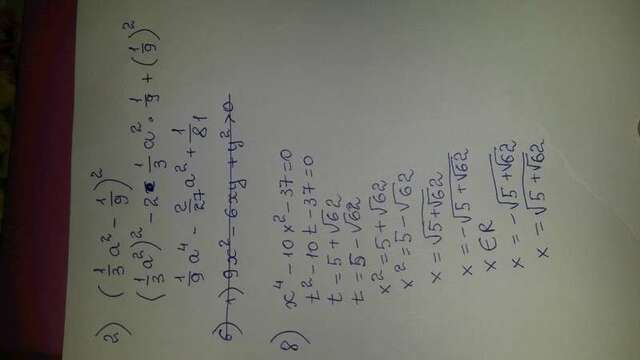 2) (1/3 a² - 1/9)²
(1/3 a²)² - 2 · 1/3 a² · 1/9 + (1/9)²
1/9 a⁴ - 2/27 a² + 1/81
6) 1) 9x² - 6xy + y² > 0
8) x⁴ - 10x² - 37 = 0
t² - 10t - 37 = 0
t = 5 + √62
t = 5 - √62
x² = 5 + √62
x² = 5 - √62
x = √(5 + √62)
x = -√(5 + √62)
x ∈ R
x = -√(5 + √62)
x = √(5 + √62)